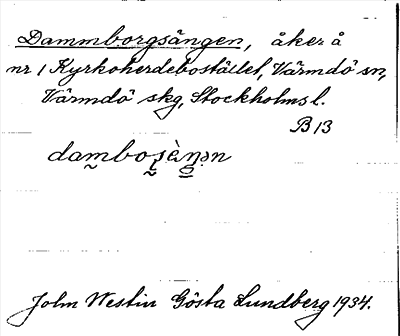 Dammborgsängen, åker å
nr 1 Kyrkoherdebostället, Värmdö sn,
Värmdö skg, Stockholms l.
B 13
dam̰bo̰ʂèŋ̲ən
John Westin Gösta Lundberg 1934.